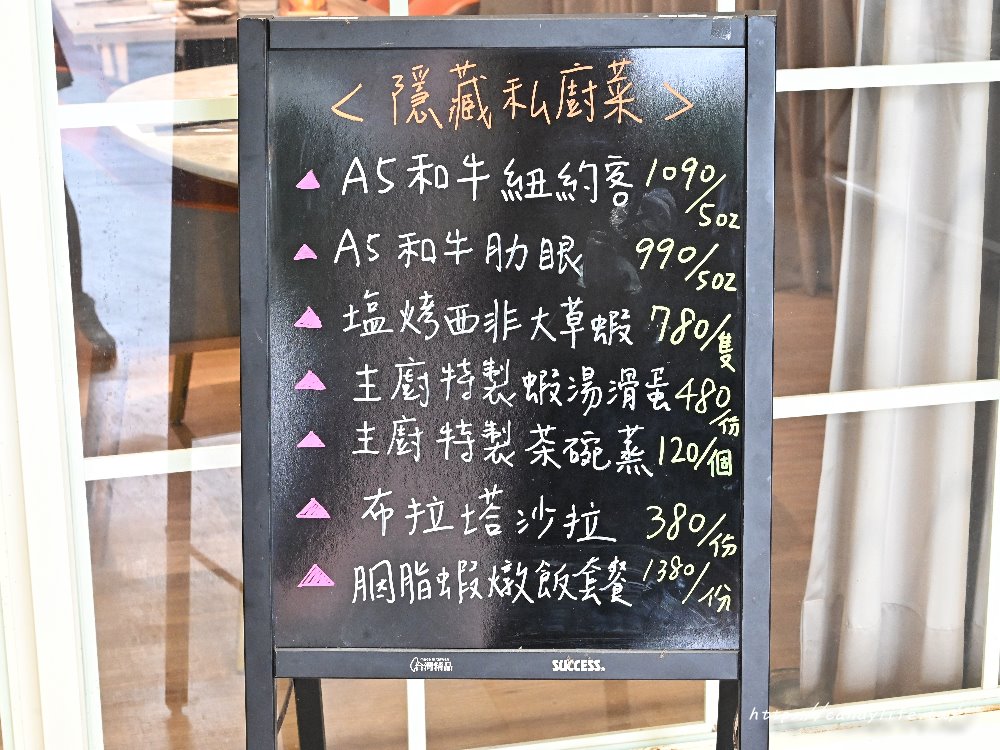 < 隱藏私廚菜 >
▲ A5和牛紐約客 1090/5oz
▲ A5和牛肋眼 990/5oz
▲ 塩烤西非大草蝦 780/隻
▲ 主廚特製蝦湯滑蛋 480/份
▲ 主廚特製茶碗蒸 120/個
▲ 布拉塔沙拉 380/份
▲ 胭脂蝦燉飯套餐 1380/份
台灣精品 SUCCESS